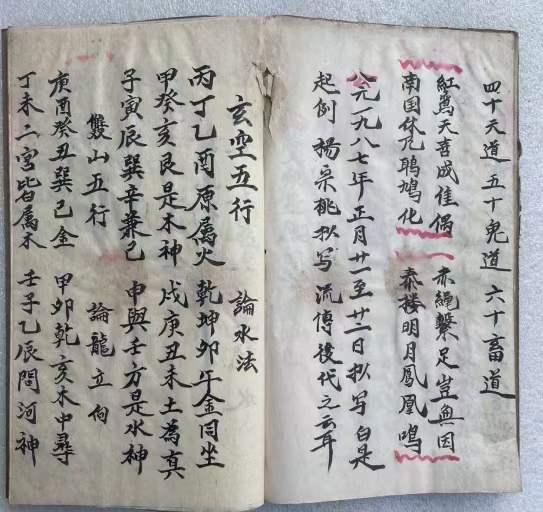 四十天道五十鬼道六十畜道
紅鸞天喜成佳偶 赤繩繫足豈無因
南国 鳩化 秦楼明月鳳凰鳴
公元一九八七年正月廿一至廿二日抄写白是
起例 楊采桃抄写流傳後代之云耳
玄空五行 論水法
丙丁乙酉原属火 乾坤卯午金同坐
甲癸亥艮是木神 戌庚丑未土為真
子寅辰巽辛兼己 申與壬方是水神
雙山五行 論龍立向
庚酉癸丑巽己金 甲卯乾亥木中尋
丁未二宮皆属木 壬子乙辰問河神